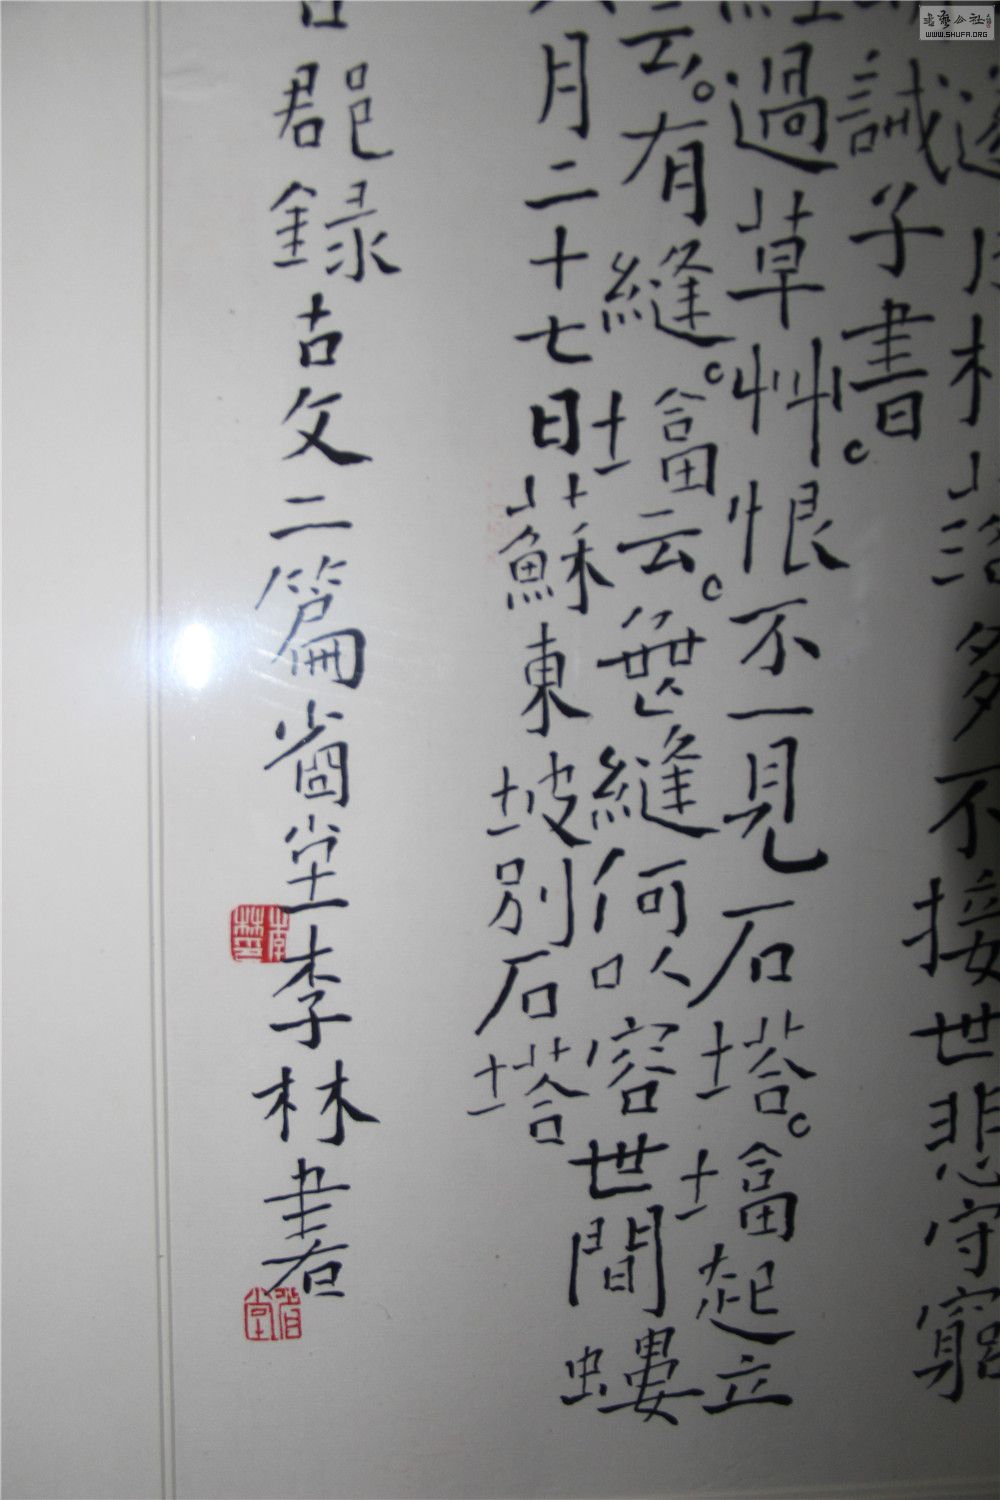 遂成枯落多不接世悲守窮
誡子書。
經過草草恨不一見石塔。塔起立
云。有縫。塔云。無縫何以容世間螻
八月二十七日蘇東坡別石塔
郡錄古文二篇堂李林書
書藝公社
WWW.SHUFA.ORG